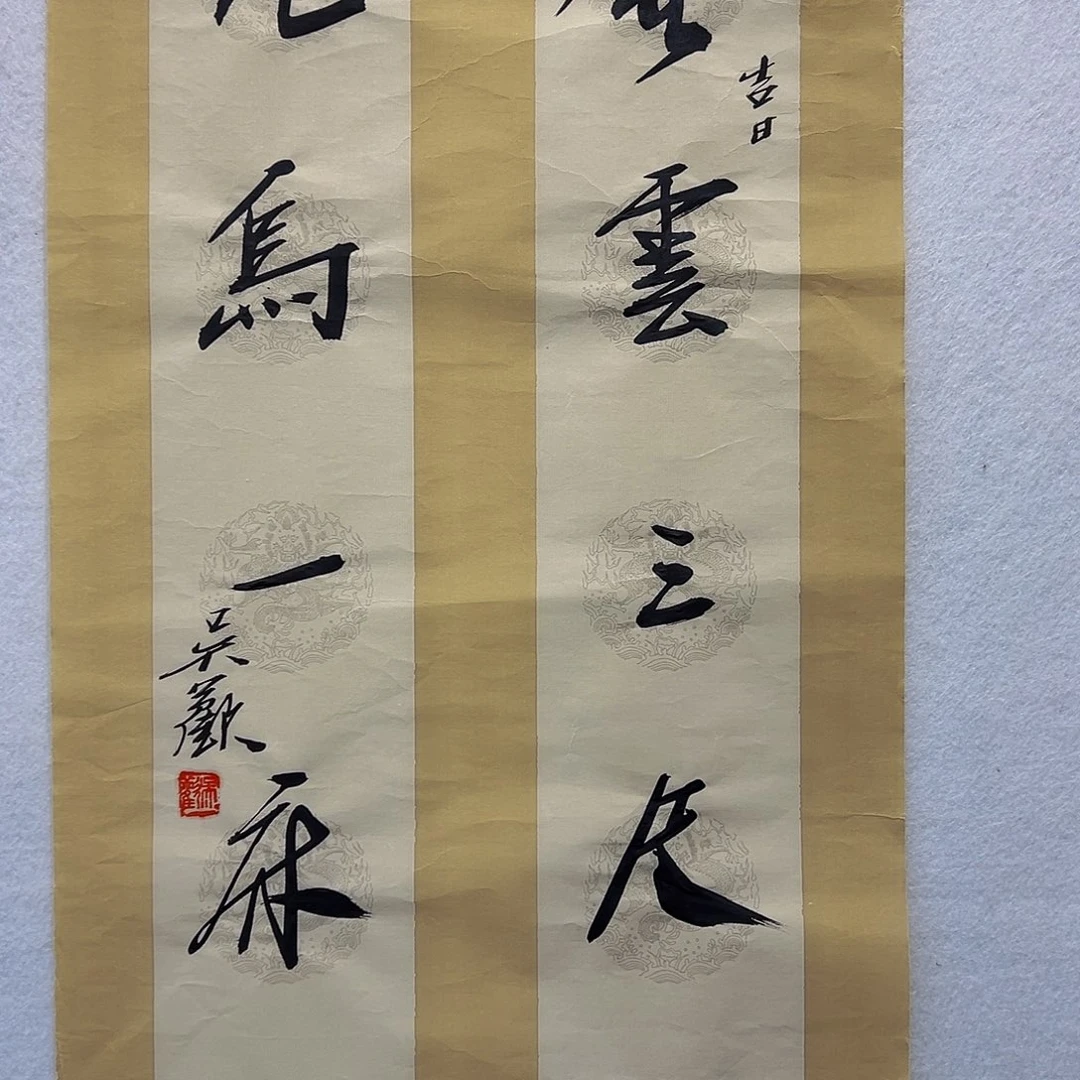 吉日
雲三尺
鳥一床
吳歡